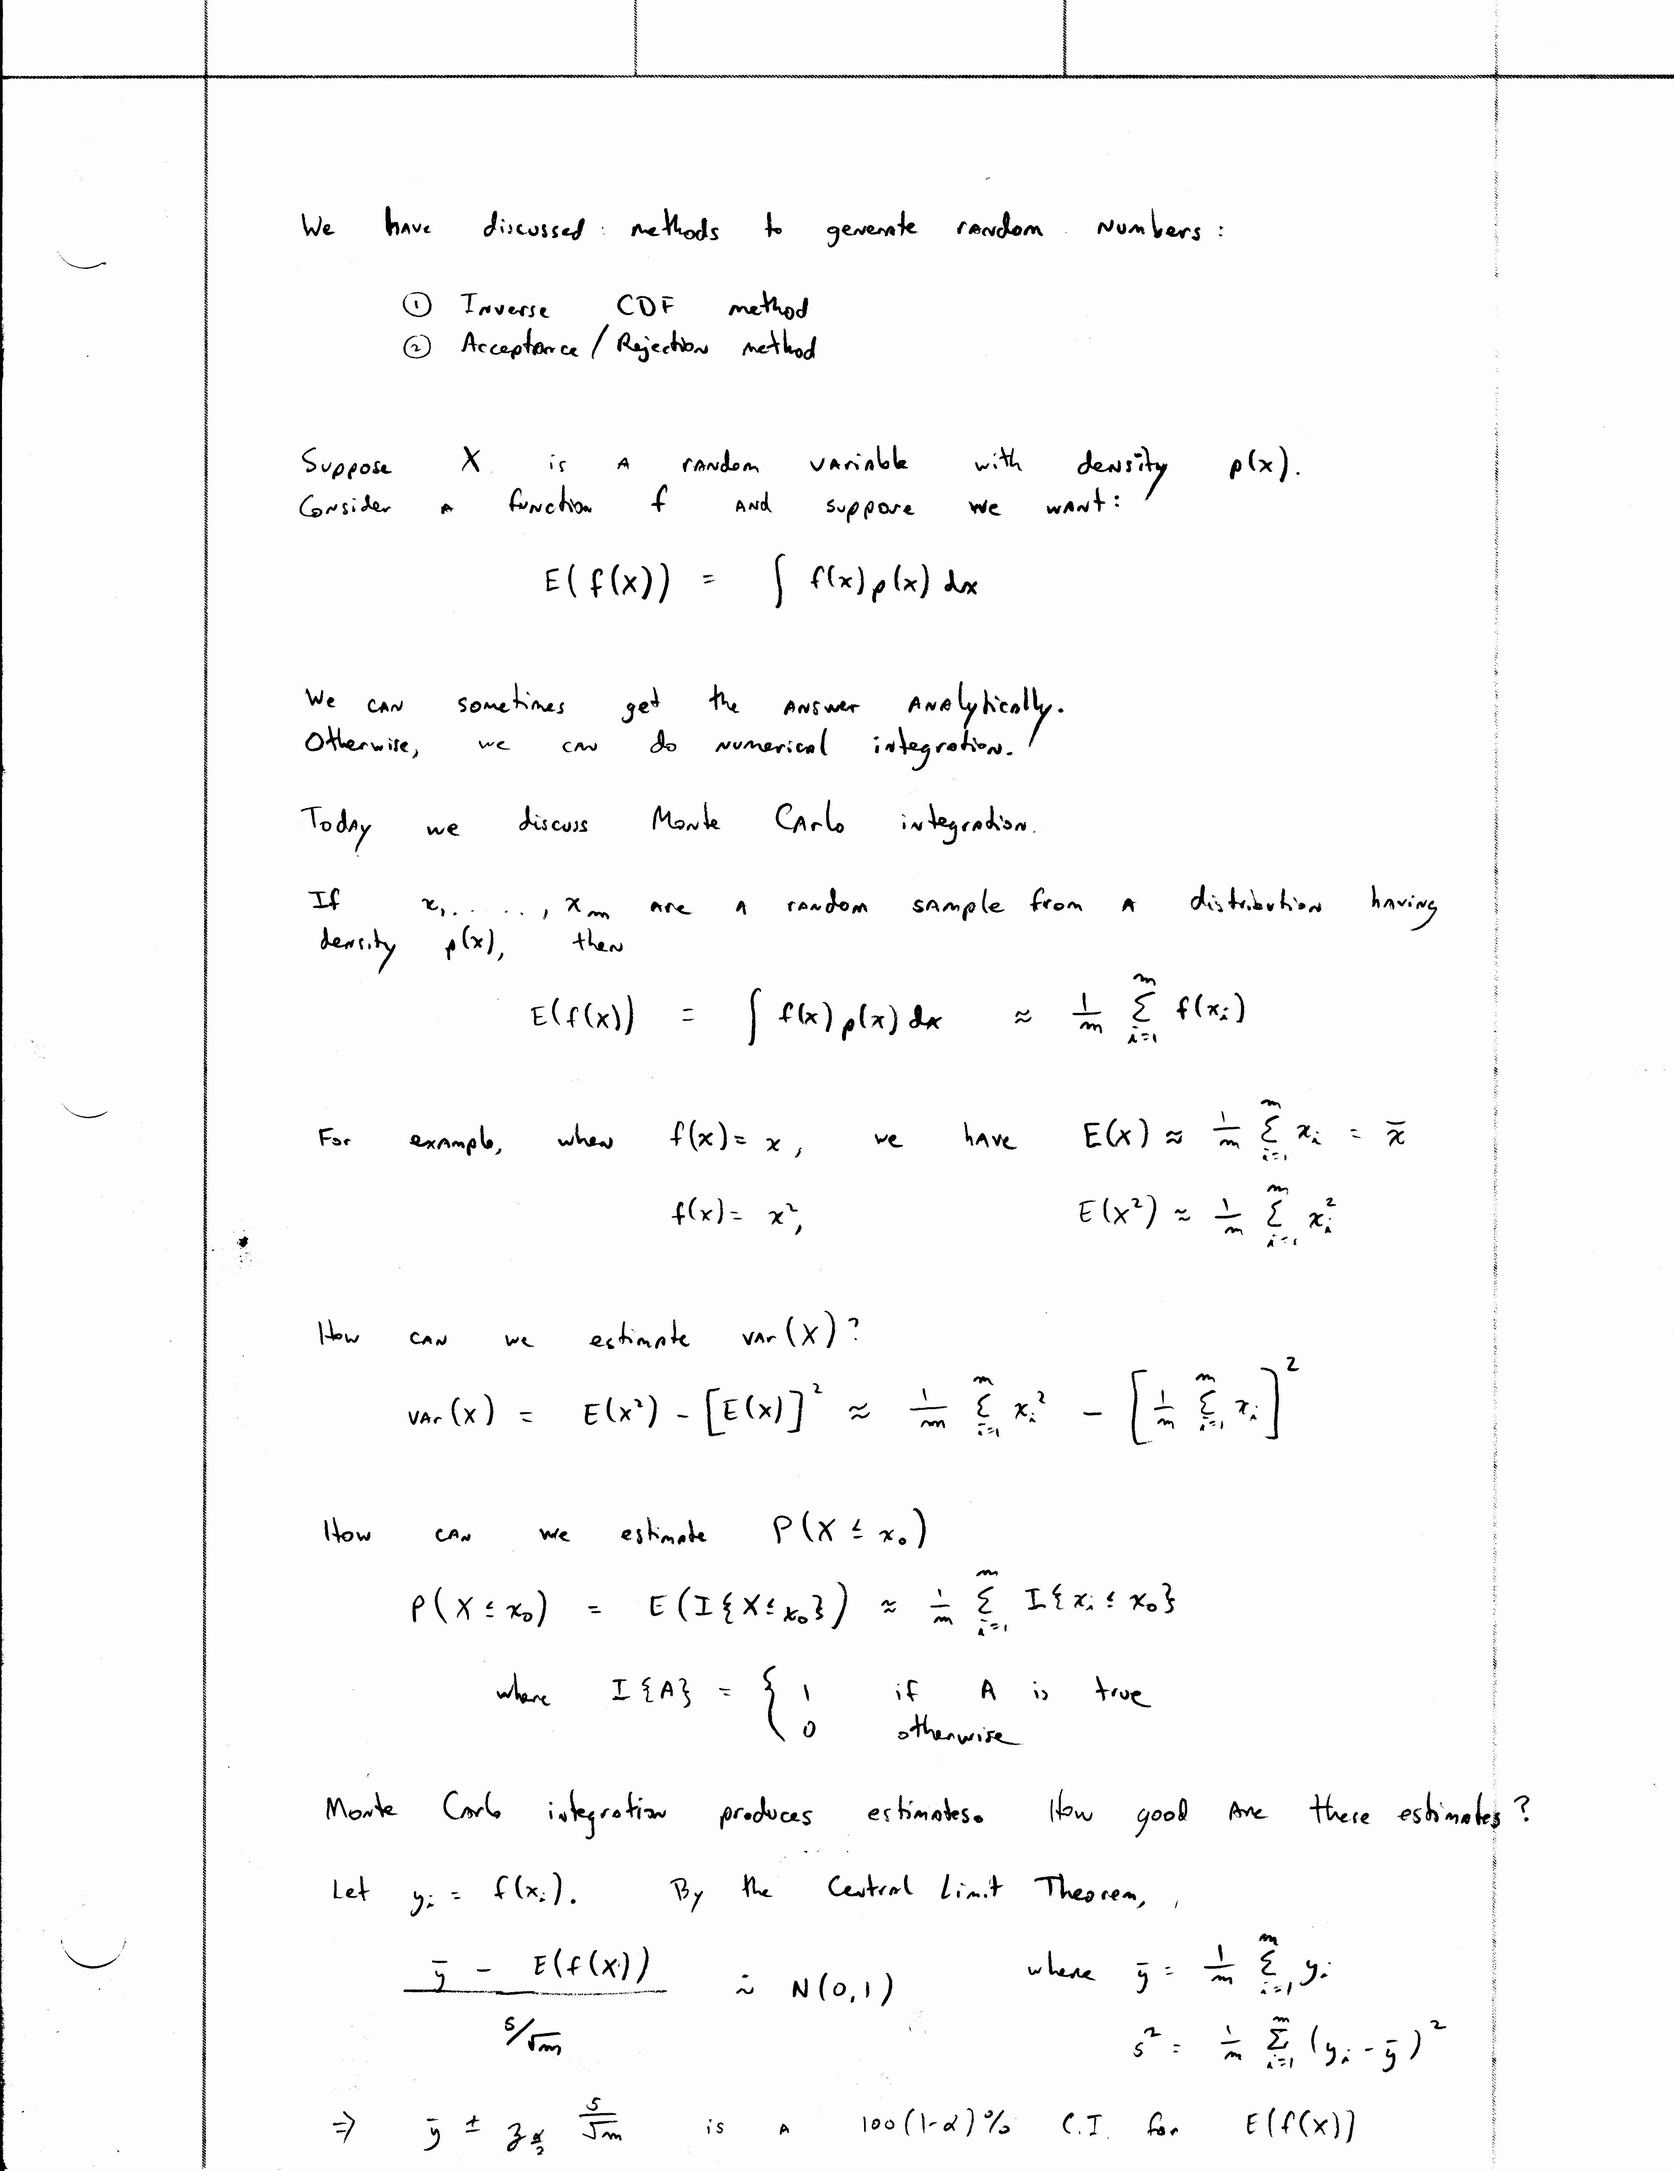 We have discussed methods to generate random numbers:
① Inverse CDF method
② Acceptance/Rejection method
Suppose X is a random variable with density p(x).
Consider a function f and suppose we want:
E(f(X)) = ∫ f(x) p(x) dx
We can sometimes get the answer analytically.
Otherwise, we can do numerical integration.
Today we discuss Monte Carlo integration.
If x₁, ....., xₘ are a random sample from a distribution having
density p(x), then
E(f(X)) = ∫ f(x) p(x) dx ≈ 1/m Σ_{i=1}^{m} f(xᵢ)
For example, when f(x) = x, we have E(X) ≈ 1/m Σ_{i=1}^{m} xᵢ = x̄
f(x) = x², E(X²) ≈ 1/m Σ_{i=1}^{m} xᵢ²
How can we estimate var(X)?
var(X) = E(X²) - [E(X)]² ≈ 1/m Σ_{i=1}^{m} xᵢ² - [1/m Σ_{i=1}^{m} xᵢ]²
How can we estimate P(X ≤ x₀)
P(X ≤ x₀) = E(I{X ≤ x₀}) ≈ 1/m Σ_{i=1}^{m} I{xᵢ ≤ x₀}
where I{A} = { 1 if A is true
0 otherwise
Monte Carlo integration produces estimates. How good are these estimates?
Let yᵢ = f(xᵢ). By the Central Limit Theorem,
(ȳ - E(f(X))) / (s/√m) ∼̇ N(0,1) where ȳ = 1/m Σ_{i=1}^{m} yᵢ
s² = 1/m Σ_{i=1}^{m} (yᵢ - ȳ)²
⇒ ȳ ± z_{α/2} s/√m is a 100(1-α)% C.I. for E(f(X))